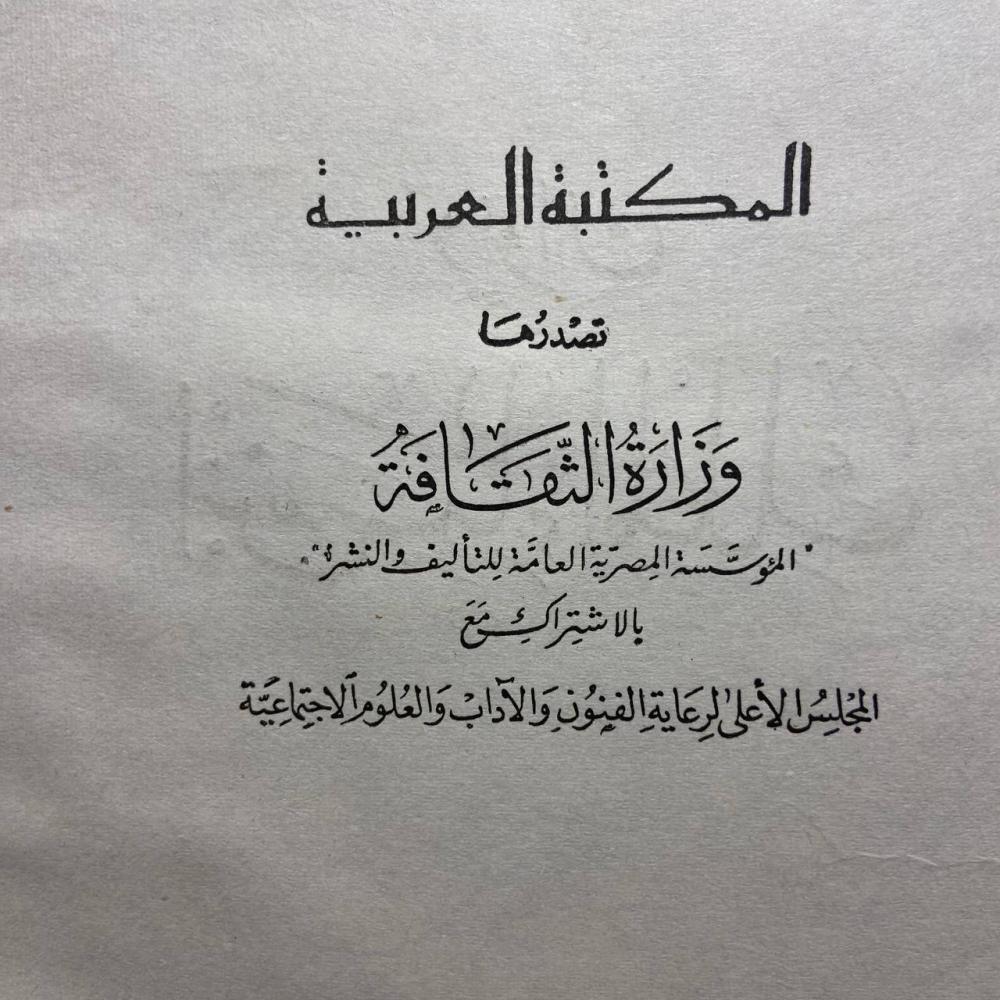 المكتبة العربية
تصْدرُها
وَزَارَةُ الثَّقَافَةُ
"المؤسَّسَة المِصرِيّة العامَّة لِلتأليف والنشر"
بالاشتِراكِ مَعَ
المجْلِسُ الأعلىٰ لِرِعَايةِ الفنُونِ وَالآدابْ وَالعُلُومِ الاجتِمَاعِيَّة